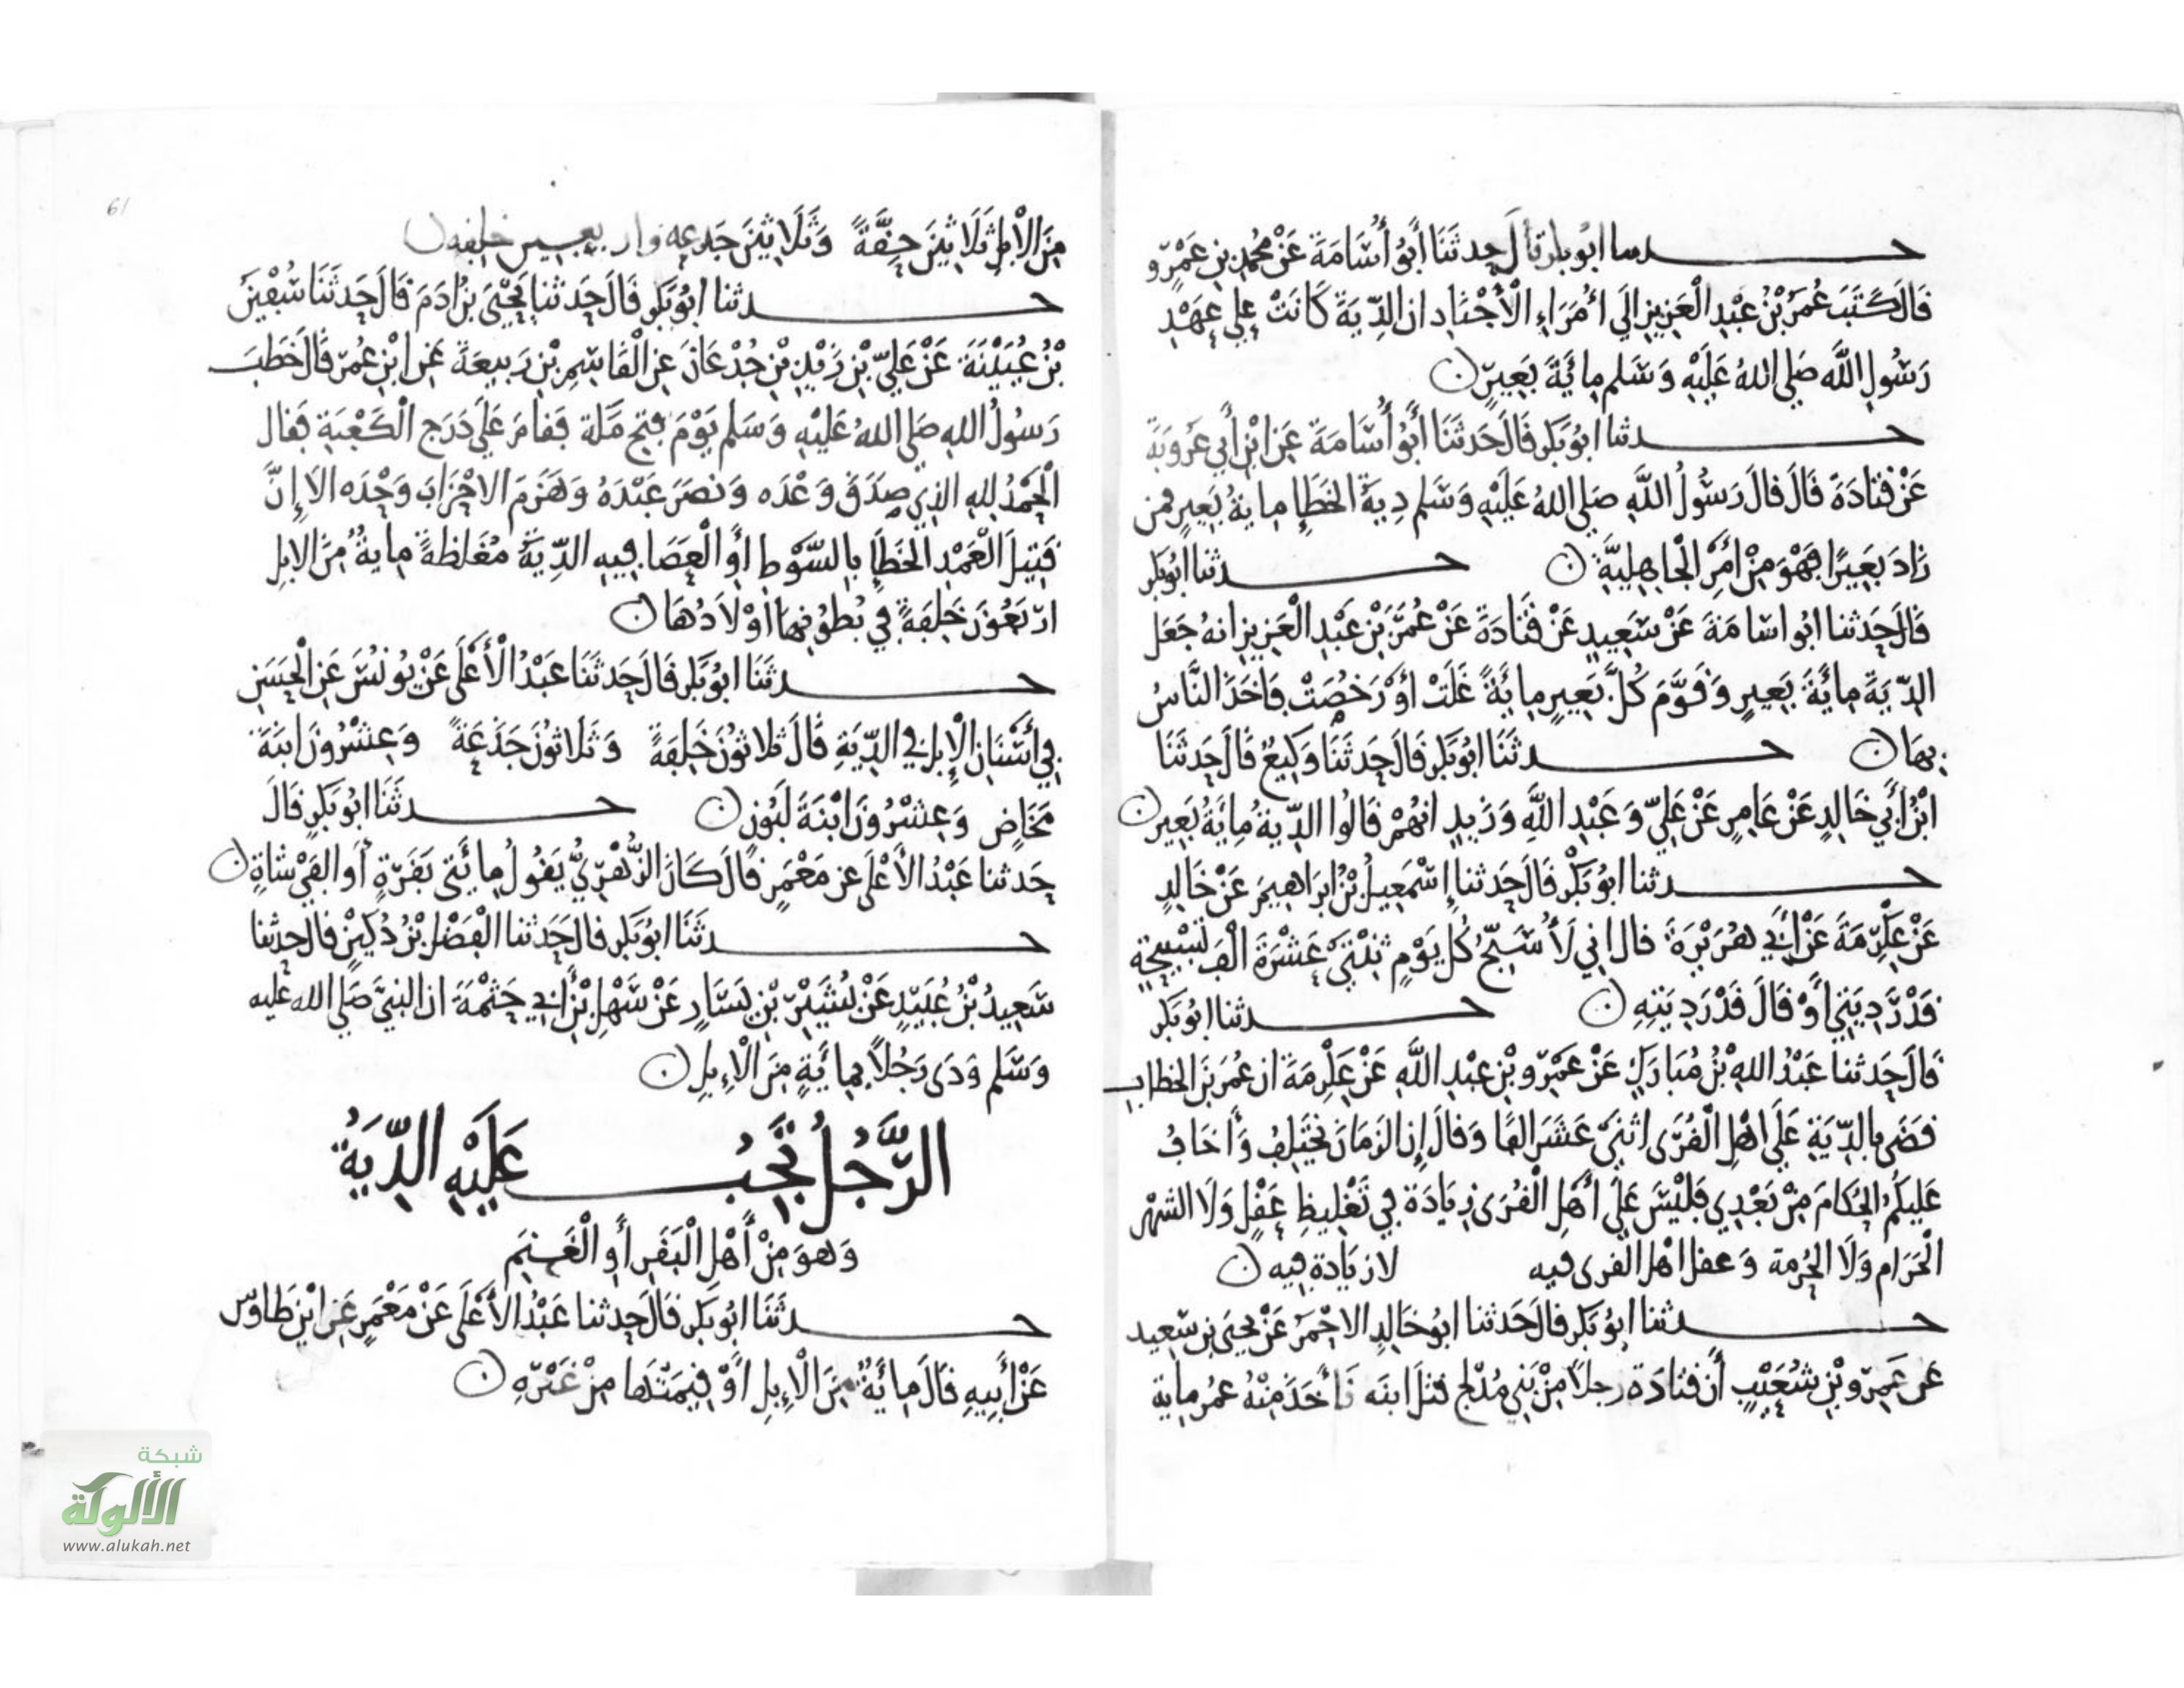 حدثنا ابو بكر قال حدثنا أبو أسامة عن محمد بن عمرو
قال كتب عمر بن عبد العزيز الي امراء الأجناد ان الدية كانت علي عهد
رسول الله صلي الله عليه وسلم مائة بعير
حدثنا ابو بكر قال حدثنا أبو أسامة عن ابن أبي عروبة
عن قتادة قال قال رسول الله صلي الله عليه وسلم دية الخطإ ماية بعير فمن
زاد بعيرا فهو من أمر الجاهلية حدثنا ابو بكر
قال حدثنا ابو اسامة عن سعيد عن قتادة عن عمر بن عبد العزيز انه جعل
الدية مائة بعير وقوم كل بعير مائة غلت أو رخصت فاخذ الناس
بها حدثنا ابو بكر قال حدثنا وكيع قال حدثنا
ابن أبي خالد عن عامر عن علي وعبد الله وزيد انهم قالوا الدية مائة بعير
حدثنا ابو بكر قال حدثنا إسمعيل بن ابراهيم عن خالد
عن عكرمة عن أبي هريرة قال اني لأسبح كل يوم ثنتي عشرة الف تسبيحة
قدر ديتي أو قال قدر ديته حدثنا ابو بكر
قال حدثنا عبد الله بن مبارك عن عمرو بن عبد الله عن عكرمة ان عمر بن الخطاب
قضى بالدية على اهل القرى اثنى عشر الفا وقال إن الزمان يختلف وأخاف
عليكم الحكام من بعدي فليس على أهل القرى زيادة في تغليظ عقل ولا الشهر
الحرام ولا الحرمة وعقل اهل القرى فيه لا زيادة فيه
حدثنا ابو بكر قال حدثنا ابو خالد الاحمر عن يحيى بن سعيد
عن عمرو بن شعيب أن قتادة رجلا من بني مدلج قتل ابنه فأخذ منه عمر ماية
61
من الابل ثلاثين حقة وثلاثين جذعة واربعين خلفة
حدثنا ابو بكر قال حدثنا يحيى بن ادم قال حدثنا سفين
بن عيينة عن علي بن زيد بن جدعان عن القاسم بن ربيعة عن ابن عمر قال خطب
رسول الله صلى الله عليه وسلم يوم فتح مكة فقام على درج الكعبة فقال
الحمد لله الذي صدق وعده ونصر عبده وهزم الاحزاب وحده الا إن
قتيل العمد الخطإ بالسوط أو العصا فيه الدية مغلظة ماية من الابل
اربعون خلفة في بطونها اولادها
حدثنا ابو بكر قال حدثنا عبد الأعلى عن يونس عن الحسن
في أسنان الإبل في الدية قال ثلاثون خلفة وثلاثون جذعة وعشرون ابنة
مخاض وعشرون ابنة لبون حدثنا ابو بكر قال
حدثنا عبد الأعلى عن معمر قال كان الزهري يقول مائتي بقرة أو الفي شاة
حدثنا ابو بكر قال حدثنا الفضل بن دكين قال حدثنا
سعيد بن عبيد عن بشير بن يسار عن سهل بن أبي حثمة ان النبي صلي الله عليه
وسلم ودى رجلا بمائة من الإبل
الرجل تجب عليه الدية
وهو من أهل البقر أو الغنم
حدثنا ابو بكر قال حدثنا عبد الأعلى عن معمر عن ابن طاوس
عن أبيه قال مائة من الإبل أو قيمتها من غيره
شبكة
الألوكة
www.alukah.net